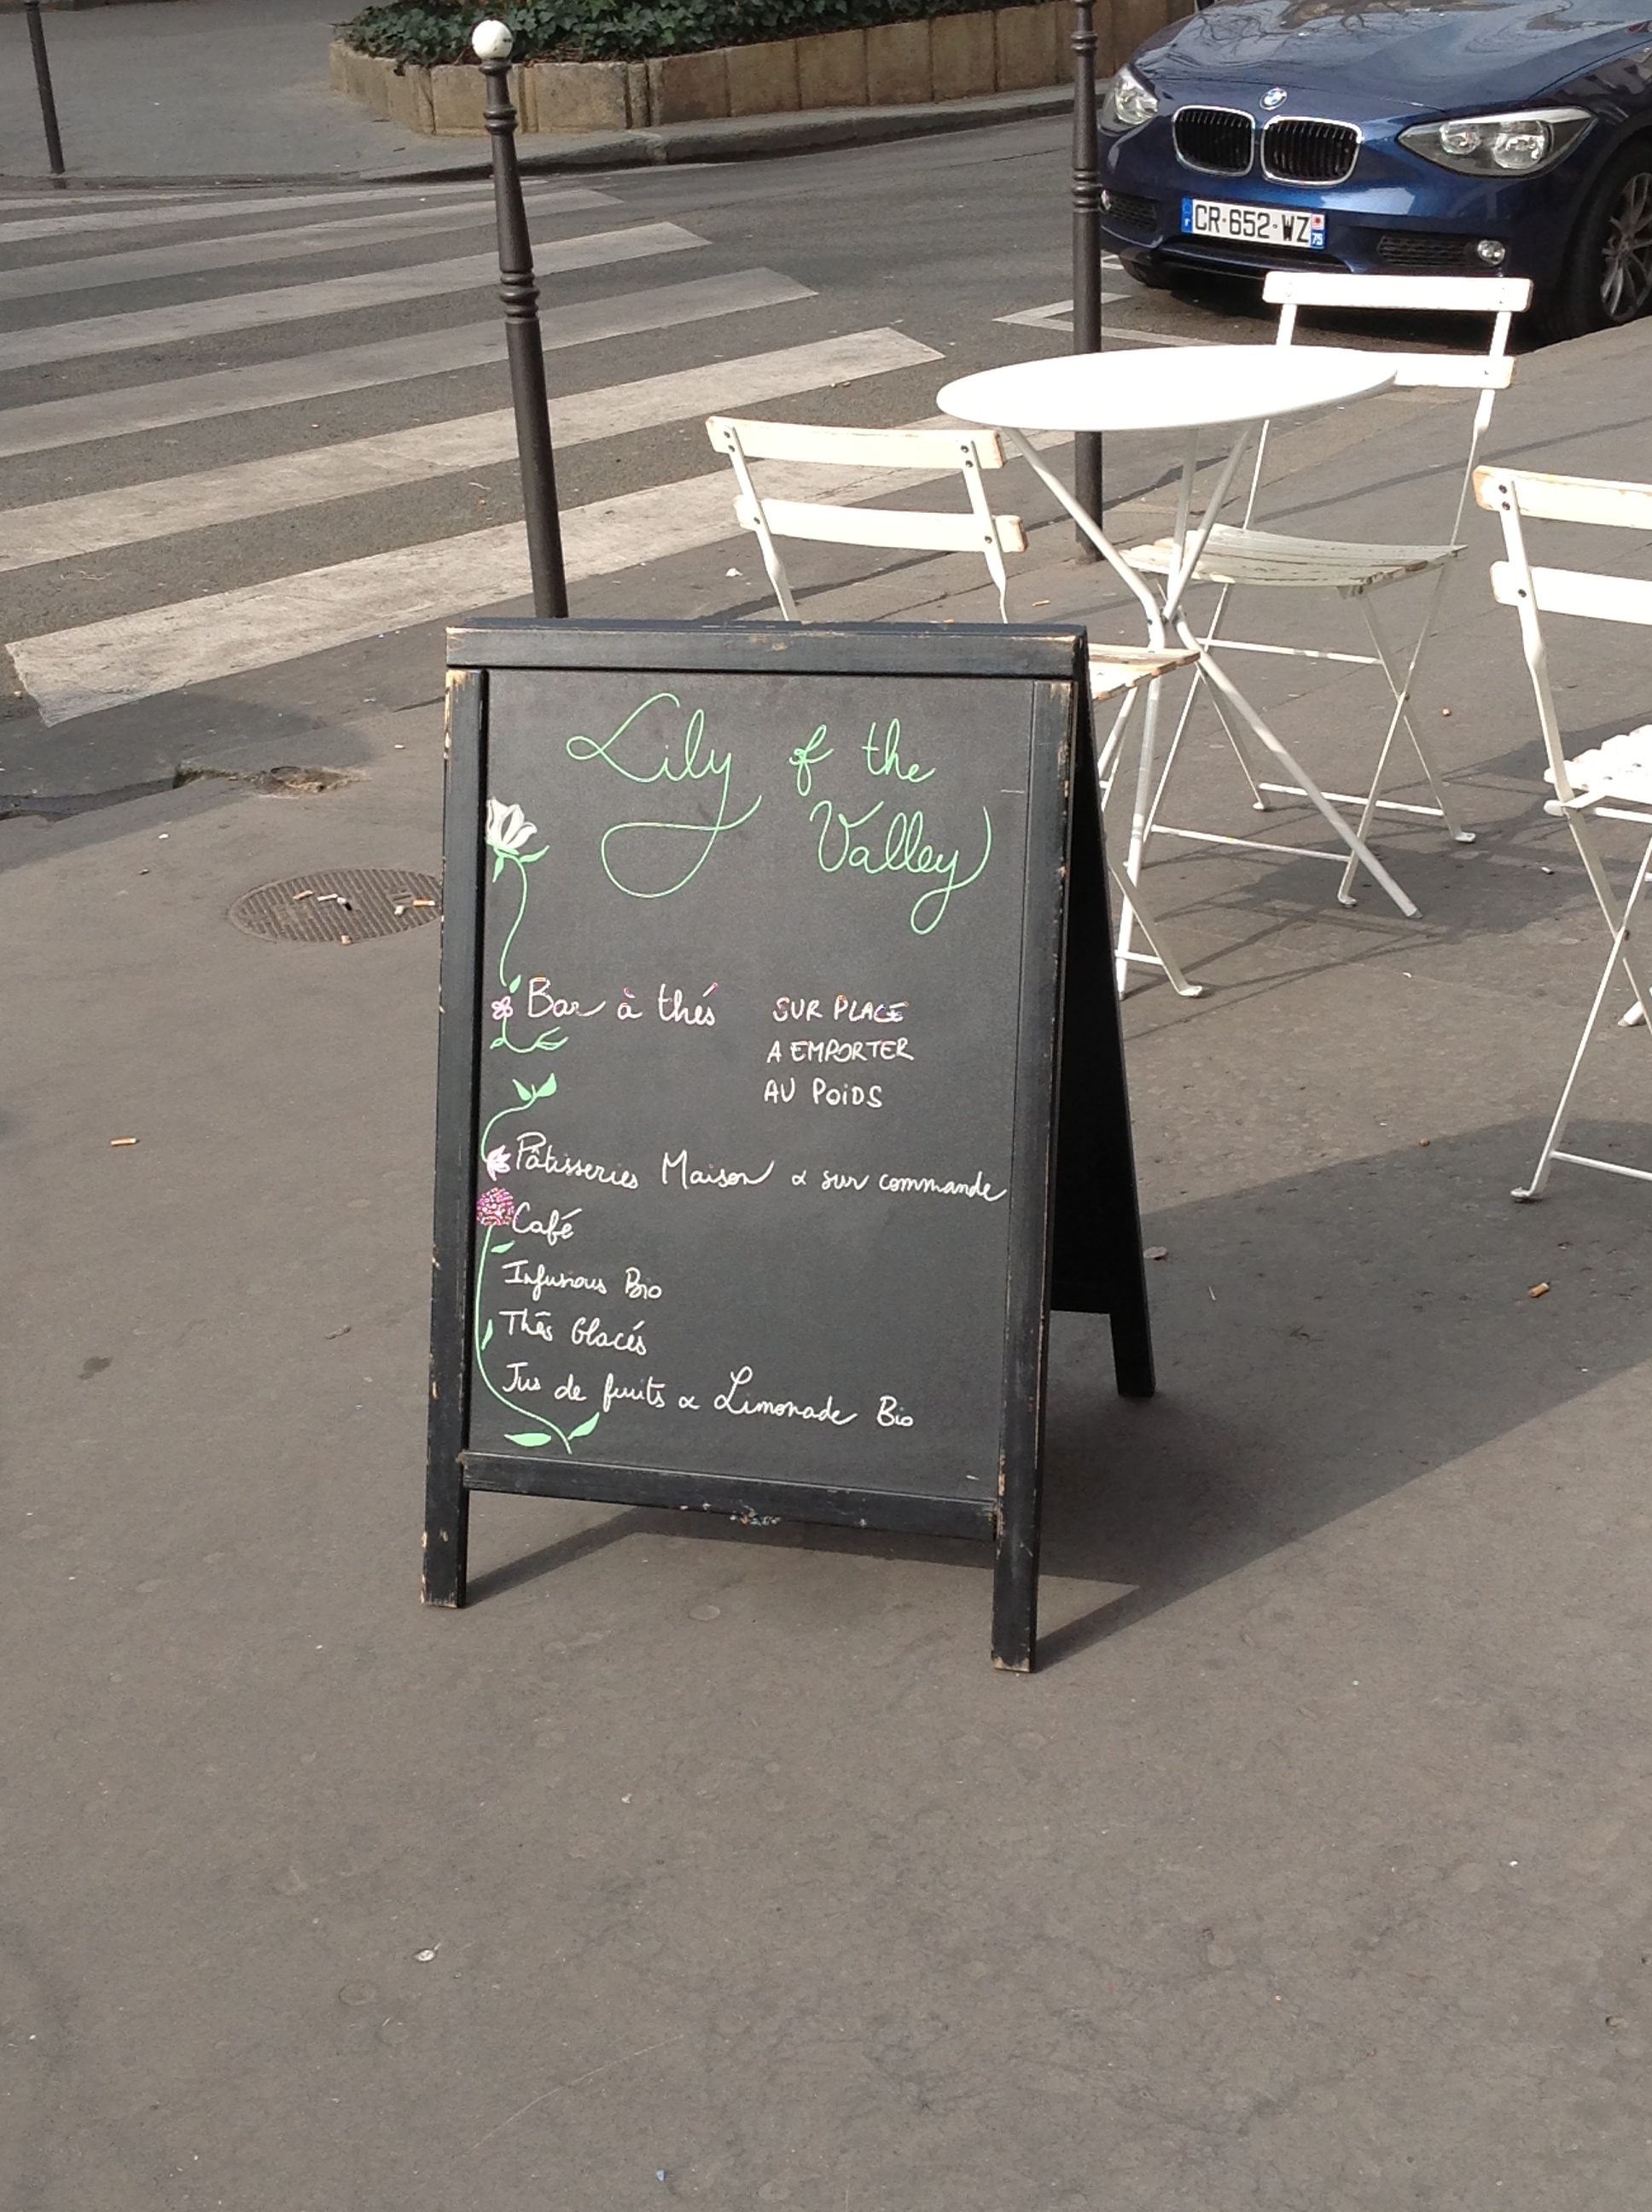 CR-652-WZ
75
Lily of the
Valley
Bar à thés
SUR PLACE
A EMPORTER
AU POIDS
Pâtisseries Maison & sur commande
Café
Infusions Bio
Thés Glacés
Jus de fruits & Limonade Bio